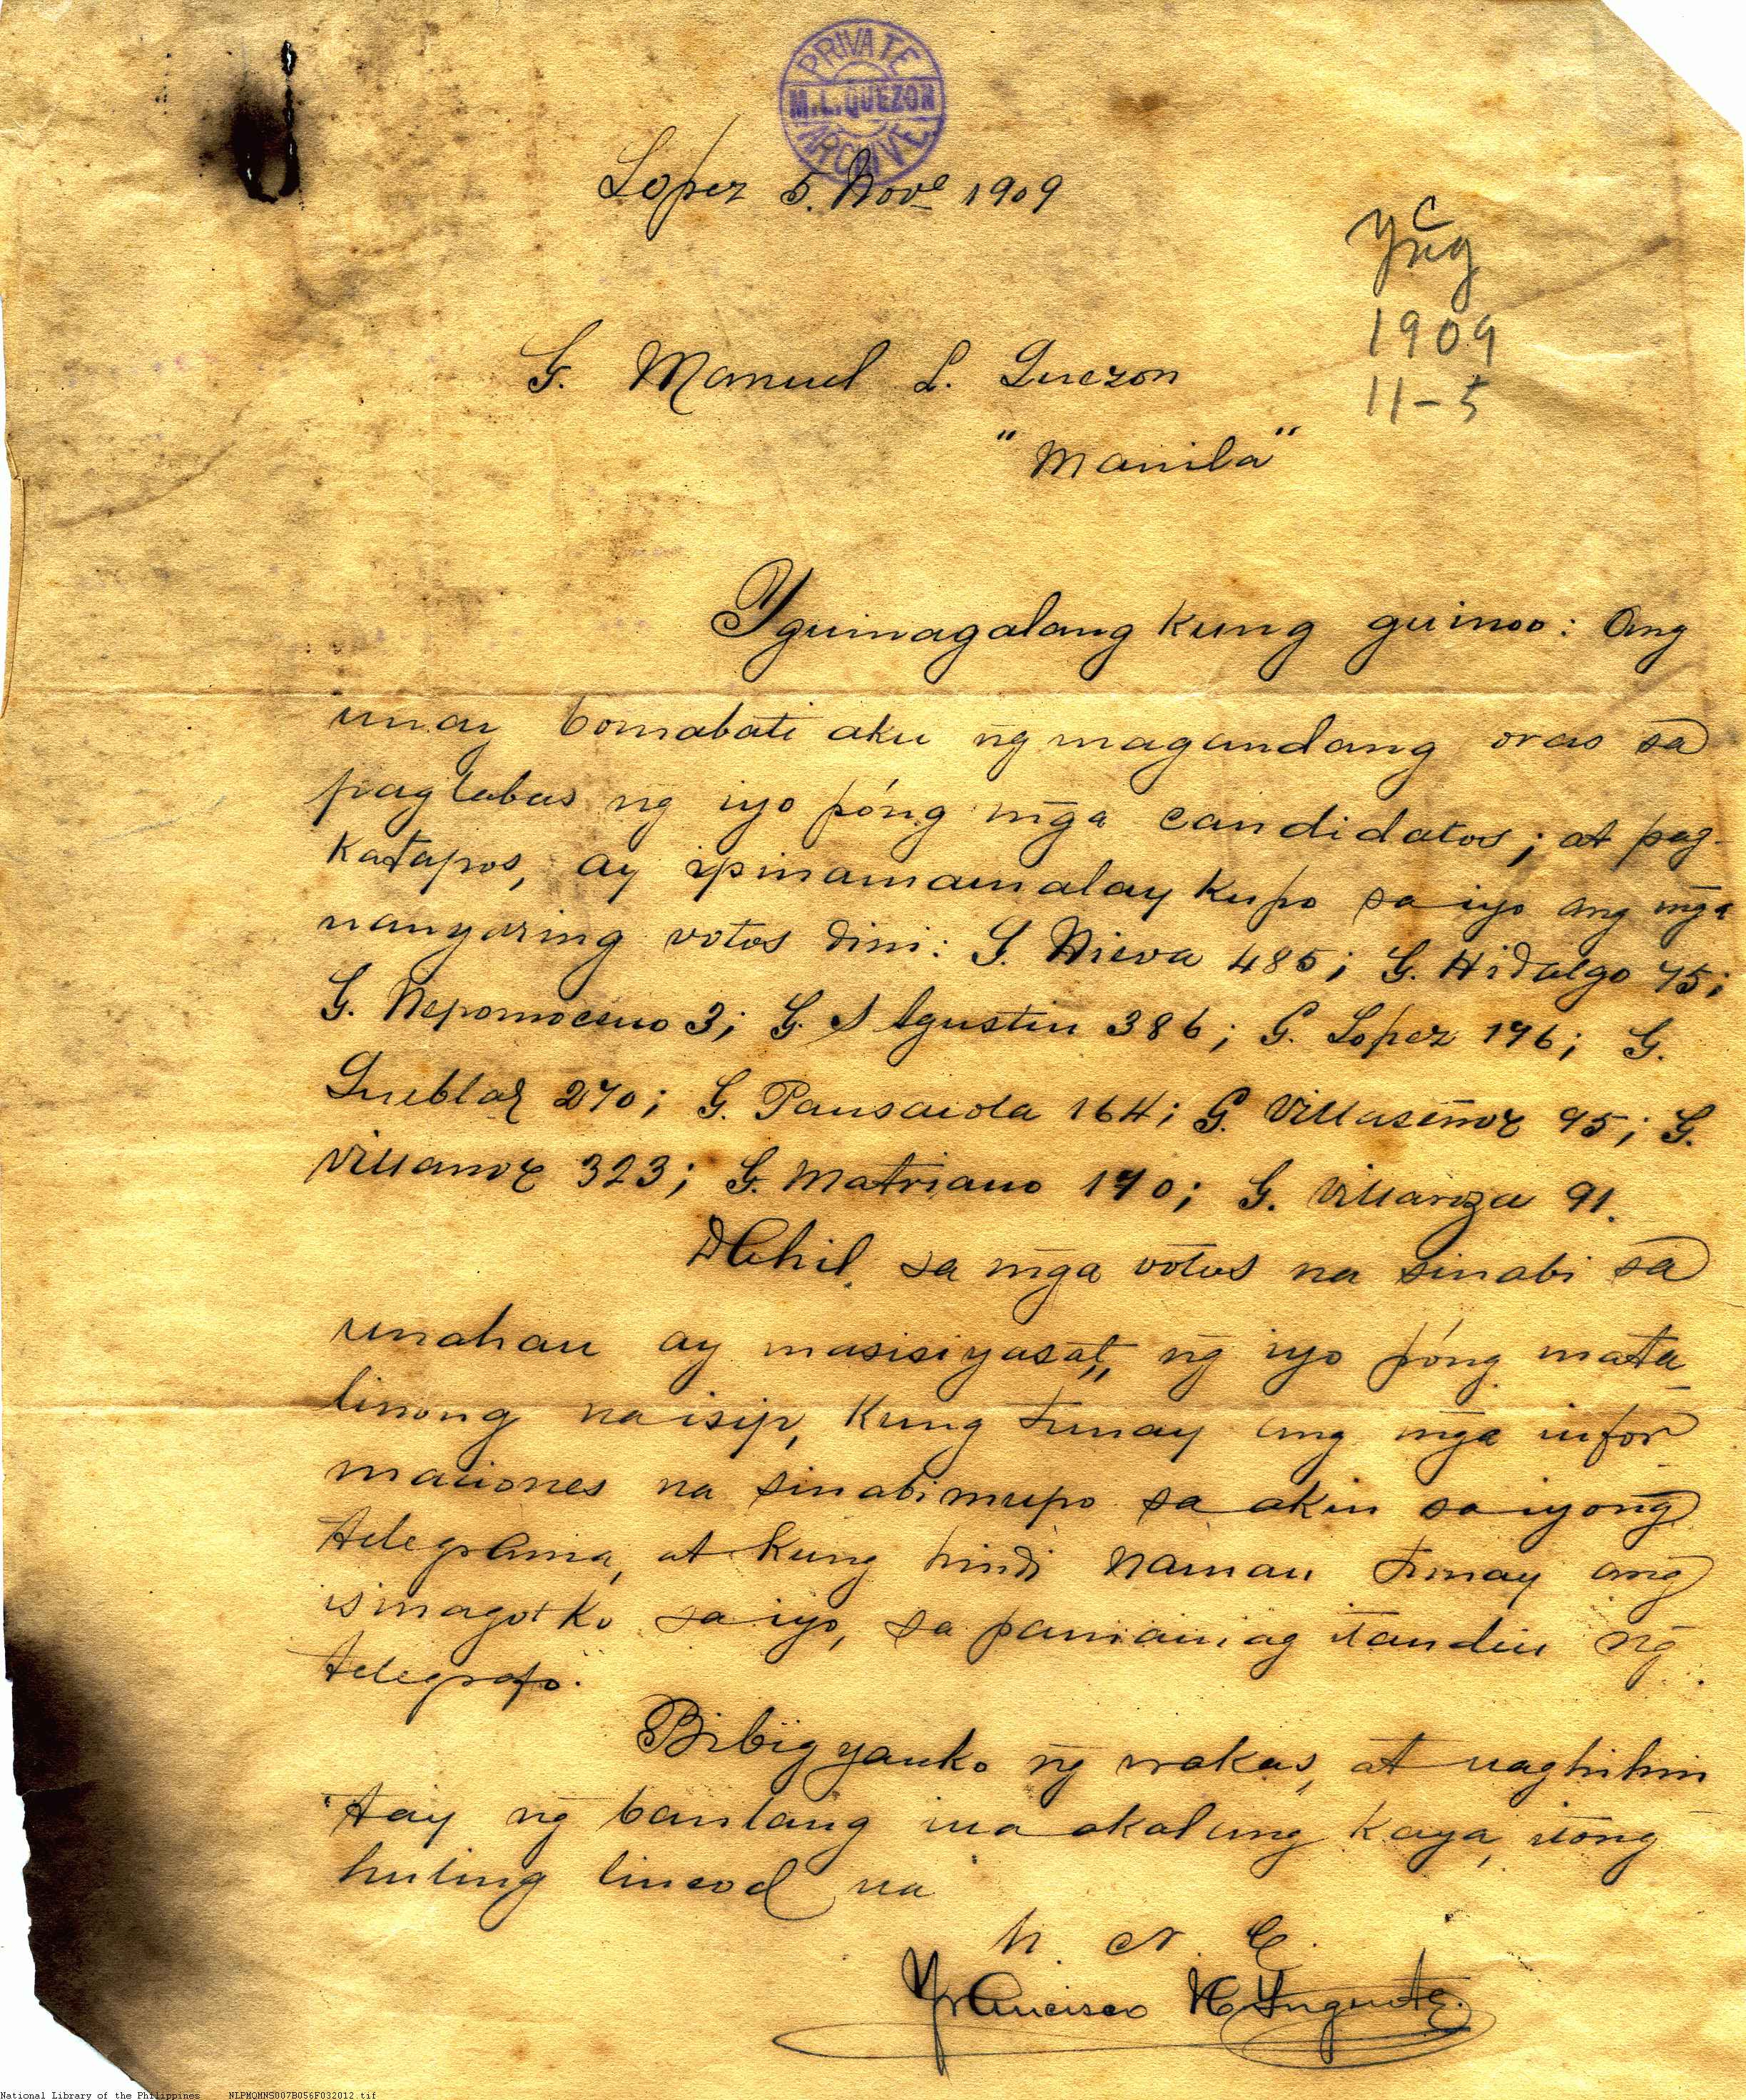 PRIVATE
M.L.QUEZON
ARCHIVE
Lopez 5. Nov.e 1909
1909
11-5
G. Manuel L. Quezon
"Manila"
Yguinagalang kung guinoo: Ang
unay bomabati aku ng̃ magandang oras sa
paglabas ng̃ iyo póng mg̃a candidatos; at pag-
katapos, ay ipinamamalay kupo sa iyo ang mg̃a
nangyaring votos dini: G. Nieva 485; G. Hidalgo 75;
G. Nepomoceno 3; G. S Agustin 386; G. Lopez 176; G.
Gueblar 270; G. Pansacola 164; G. Villaseñor 95; G.
Villamor 323; G. Matriano 170; G. Villariza 91.
Dahil sa mg̃a votos na sinabi sa
unahan ay masisiyasat, ng̃ iyo póng mata
linong na isip, kung tunay ang mg̃a infor
maciones na sinabi mupo sa akin sa iyong
telegrama, at kung hindi naman tunay ang
isinagot ko sa iyo, sa pamamag itandin ng̃
telegrafo.
Bibigyanko ng̃ wakas, at naghihin
tay ng̃ banlang ina akalang kaya, itong
huling lincod na
h. N. C.
Francisco
National Library of the Philippines NLPMQMNS007B056F032012.tif